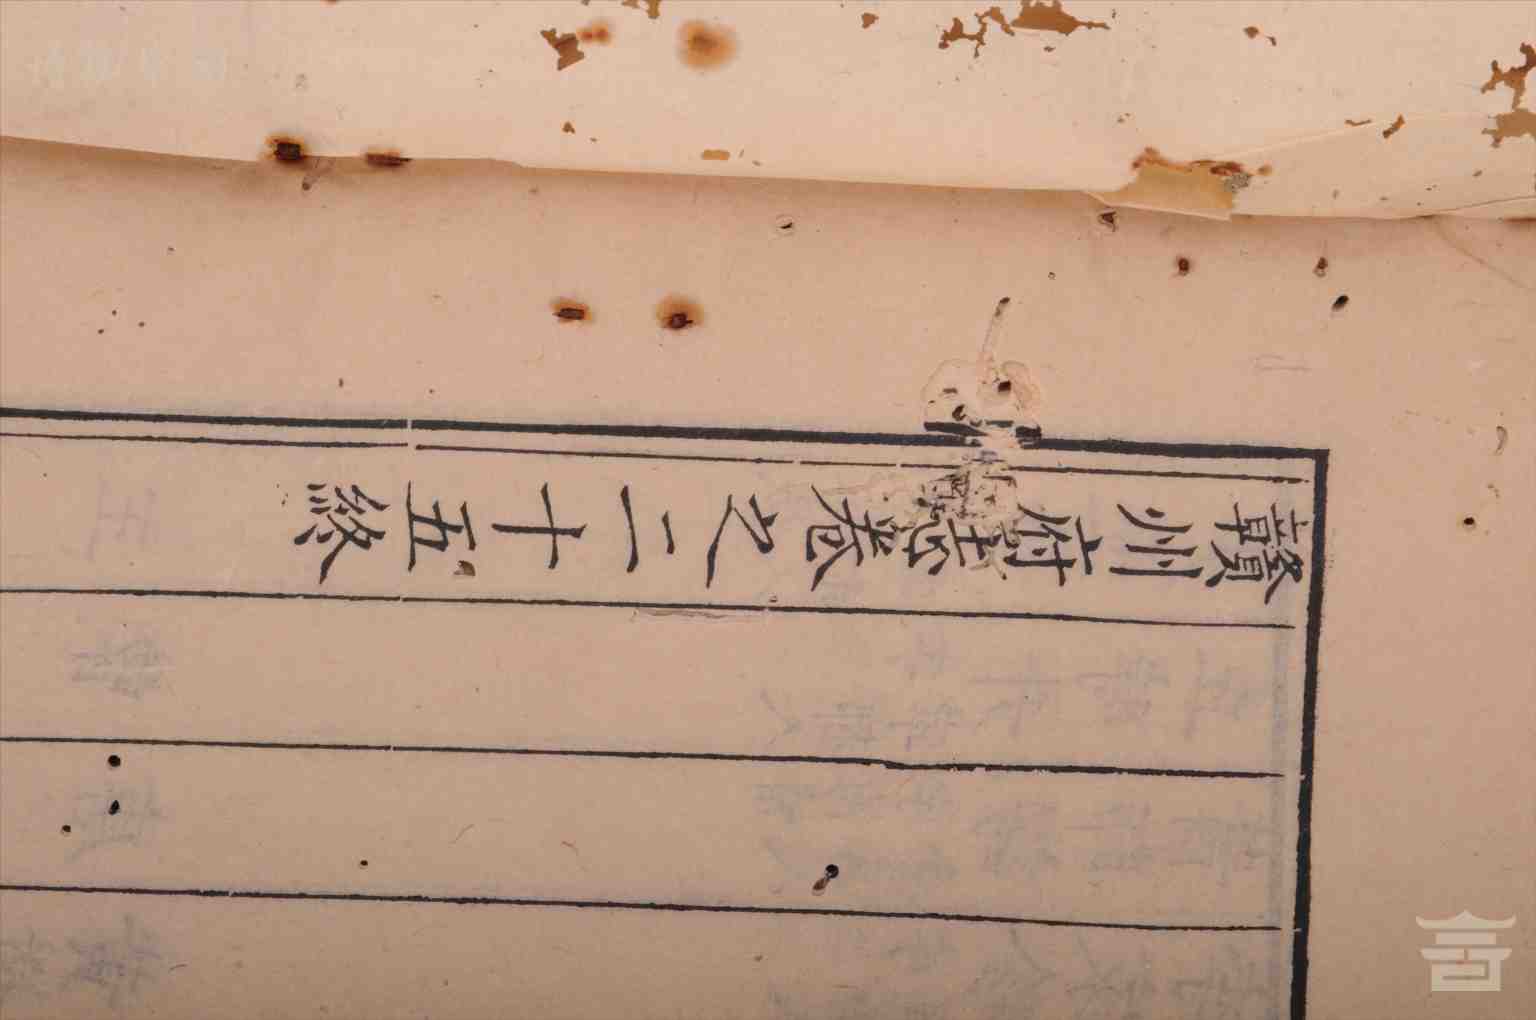 贛州府志卷之二十五終